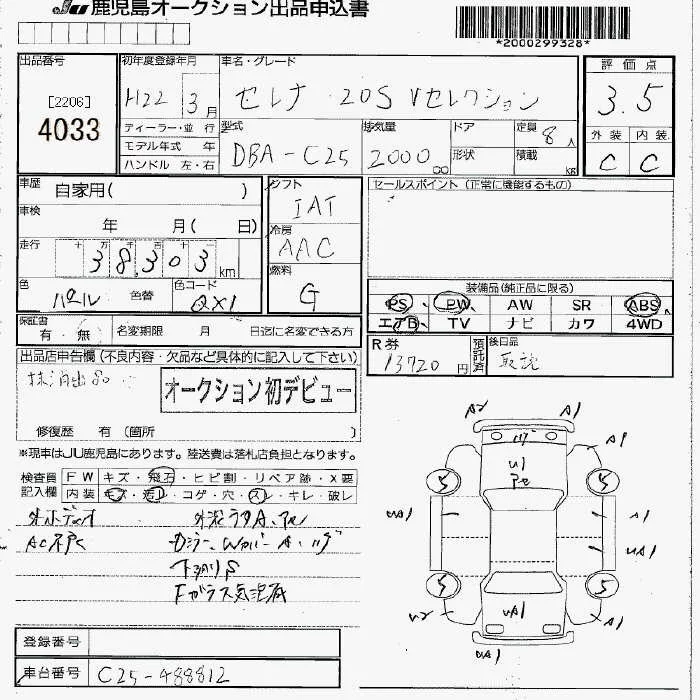 JU 鹿児島オークション出品申込書
*2000299328*
出品番号
[2206]
4033
初年度登録年月
H22 3月
車名・グレード
セレナ 20S Vセレクション
評価点
3.5
外装 内装
C C
ディーラー・並行
モデル年式 年
ハンドル 左・右
型式
DBA-C25
排気量
2000 cc
ドア
形状
定員 8人
積載 kg
車歴 自家用( )
車検
年 月( 日)
走行 十 万 千 百 十
38,303 km
色
パール
色替
色コード
QX1
シフト
IAT
冷房
AAC
燃料
G
セールスポイント (正常に機能するもの)
装備品(純正品に限る)
PS PW AW SR ABS
エアB TV ナビ カワ 4WD
保証書
有・無
名変期限 月 日迄に名変できる方
R券
13720円
預託済
後日品
取説
出品店申告欄 (不良内容・欠品など具体的に記入して下さい)
抹消出品
オークション初デビュー
修復歴 有 (箇所 )
※現車はJU鹿児島にあります。陸送費は落札店負担となります。
検査員記入欄
FW キズ・飛石・ヒビ割・リペア跡・X要
内装 キズ・汚レ・コゲ・穴・スレ・キレ・破レ
Fガラス気泡有
A2 A1
U1
A1
5 5
UA1 A1
UA1
5 5
U2 UA1 A1
UA1
登録番号
車台番号 C25-488812